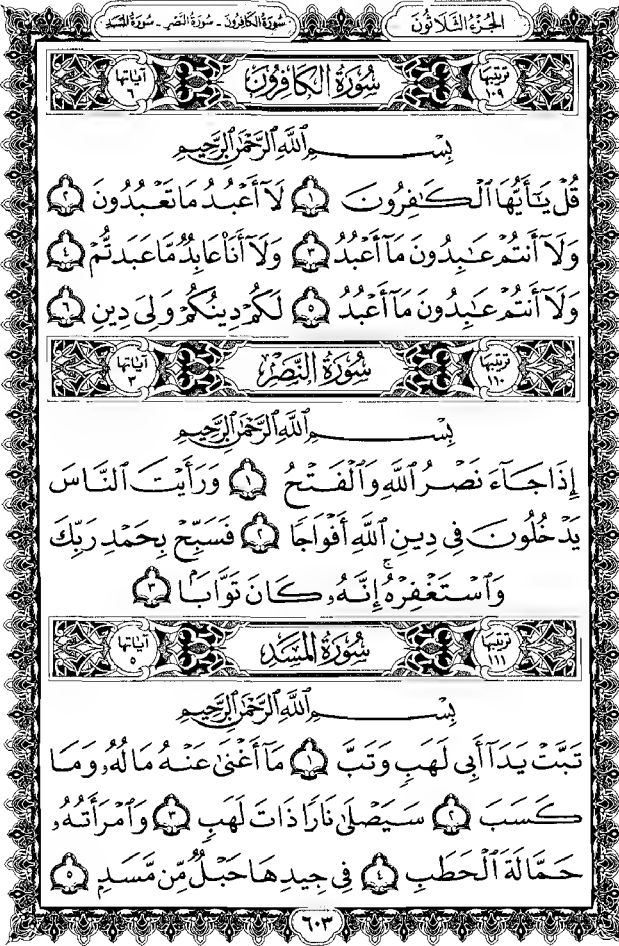 الجزء الثلاثون
سورة الكافرون - سورة النصر - سورة المسد
ترتيبها ١٠٩ سورة الكافرون آياتها ٦
بِسْمِ ٱللَّهِ ٱلرَّحْمَٰنِ ٱلرَّحِيمِ
قُلْ يَٰٓأَيُّهَا ٱلْكَٰفِرُونَ ١ لَآ أَعْبُدُ مَا تَعْبُدُونَ ٢
وَلَآ أَنتُمْ عَٰبِدُونَ مَآ أَعْبُدُ ٣ وَلَآ أَنَا۠ عَابِدٌ مَّا عَبَدتُّمْ ٤
وَلَآ أَنتُمْ عَٰبِدُونَ مَآ أَعْبُدُ ٥ لَكُمْ دِينُكُمْ وَلِيَ دِينِ ٦
ترتيبها ١١٠ سورة النصر آياتها ٣
بِسْمِ ٱللَّهِ ٱلرَّحْمَٰنِ ٱلرَّحِيمِ
إِذَا جَآءَ نَصْرُ ٱللَّهِ وَٱلْفَتْحُ ١ وَرَأَيْتَ ٱلنَّاسَ
يَدْخُلُونَ فِى دِينِ ٱللَّهِ أَفْوَاجًا ٢ فَسَبِّحْ بِحَمْدِ رَبِّكَ
وَٱسْتَغْفِرْهُ ۚ إِنَّهُۥ كَانَ تَوَّابًۢا ٣
ترتيبها ١١١ سورة المسد آياتها ٥
بِسْمِ ٱللَّهِ ٱلرَّحْمَٰنِ ٱلرَّحِيمِ
تَبَّتْ يَدَآ أَبِى لَهَبٍ وَتَبَّ ١ مَآ أَغْنَىٰ عَنْهُ مَالُهُۥ وَمَا
كَسَبَ ٢ سَيَصْلَىٰ نَارًا ذَاتَ لَهَبٍ ٣ وَٱمْرَأَتُهُۥ
حَمَّالَةَ ٱلْحَطَبِ ٤ فِى جِيدِهَا حَبْلٌ مِّن مَّسَدٍۭ ٥
٦٠٣